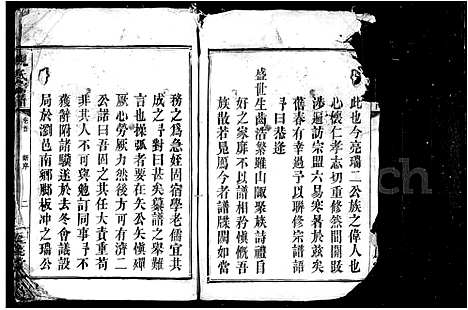 此也今亮瑞二公族之偉人也
心媛仁孝志切重修然間關跋
涉遍訪宗盟六易寒暑於茲矣
舊春有幸過予以聯修宗譜語
予曰恭逢
盛世生齒浩繁雖山陬聚族詩禮自
好之家靡不以譜相矜慎慨吾
族散若晁鴈今者譜牒闕如當
務之為急姪固宿學老儒宜其
成之予對曰甚矣纂譜之舉難
言也操弧者要在矢公矢慎殫
厥心勞厥力然後方可有濟二
公諾曰吾二人共任大責重苟
非其人不可與勉訂同事予不
獲辭附諸驥遂於去冬會議設
局於瀏邑南鄉鵬板冲之瑞公
卷首
新序
二